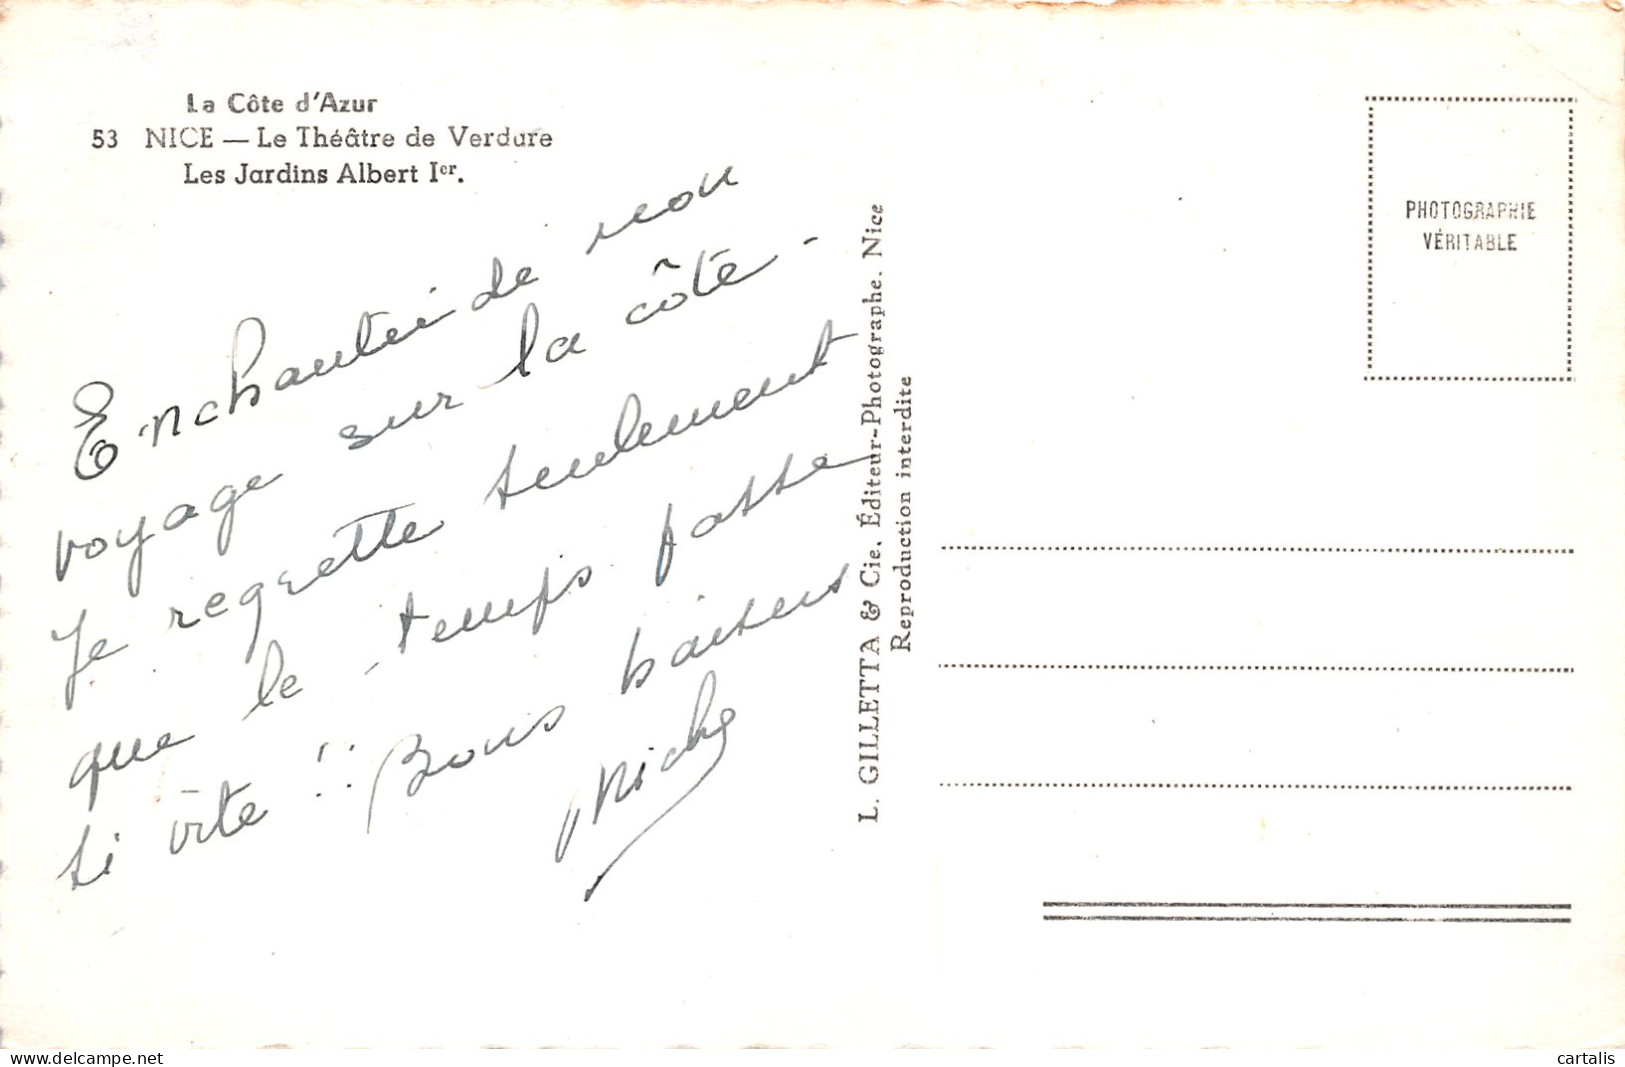 La Côte d'Azur
53 NICE — Le Théâtre de Verdure
Les Jardins Albert Ier.
Enchantée de mon
voyage sur la côte -
Je regrette seulement
que le temps passe
si vite !! Bons baisers
L. GILLETTA & Cie, Éditeur-Photographe. Nice
Reproduction interdite
PHOTOGRAPHIE
VÉRITABLE
www.delcampe.net
cartalis